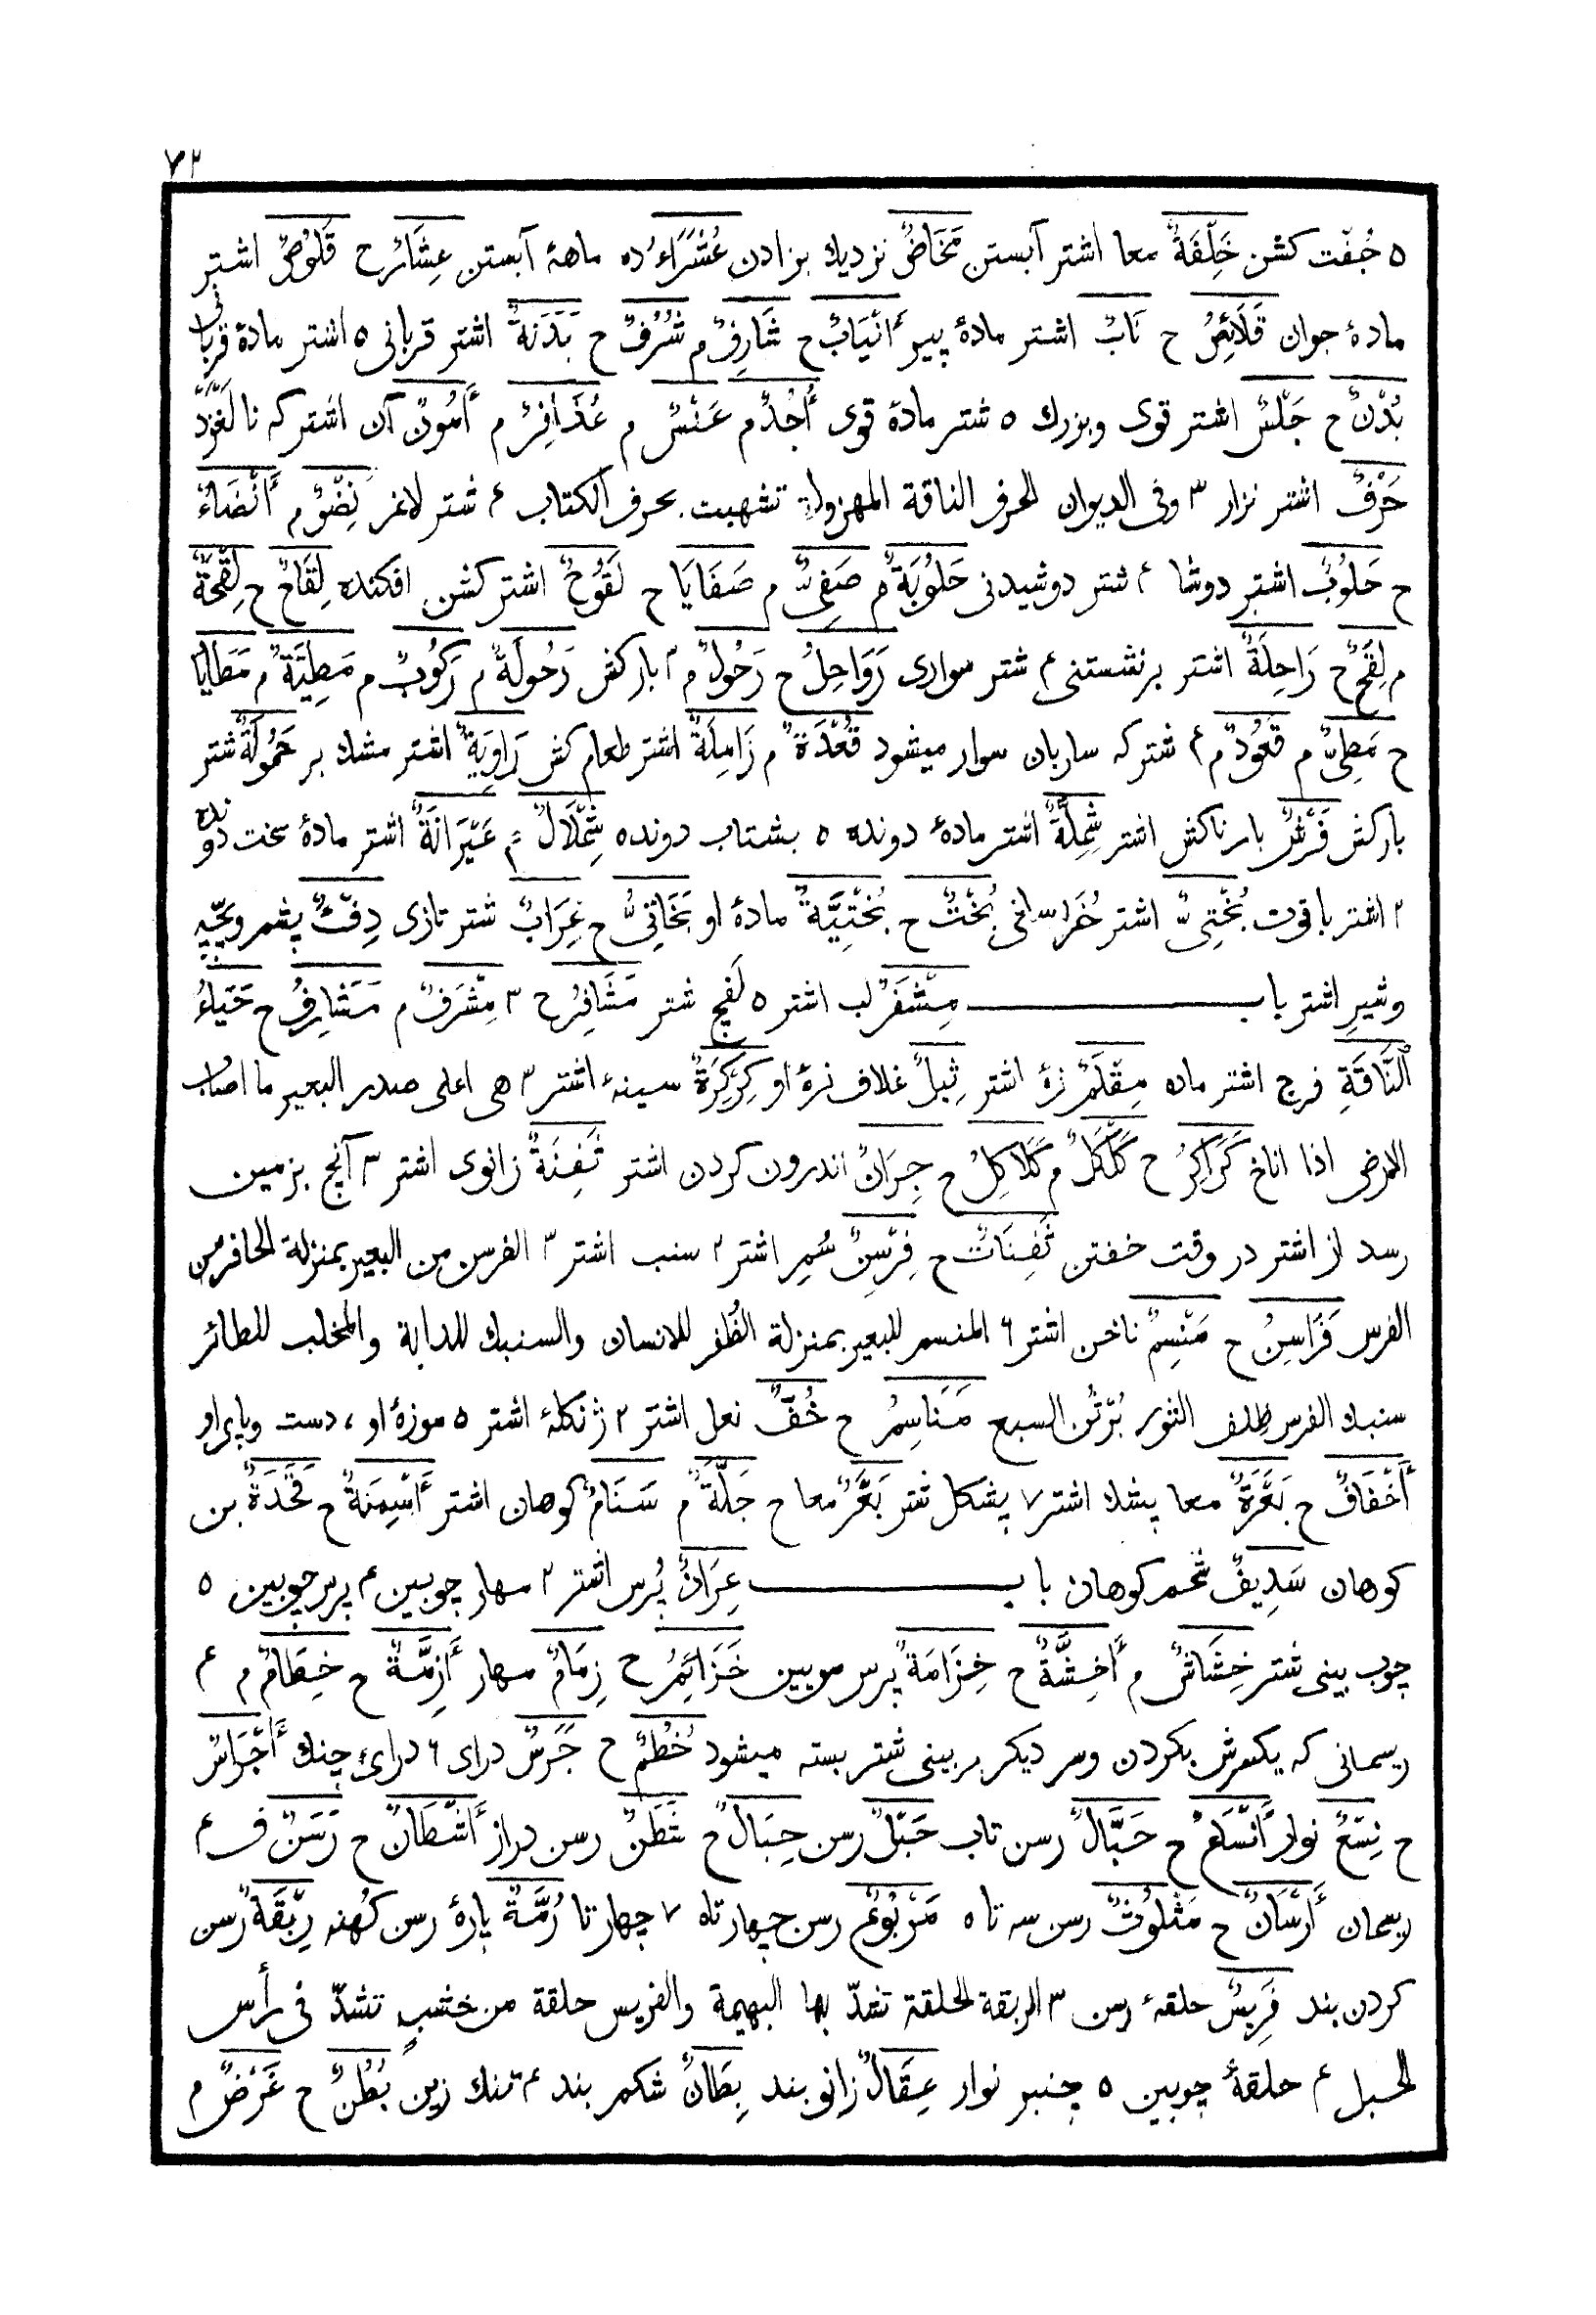 ٧٢
٥ جُفْت كشن خَلِفَةٌ معا اشتر آبستن مَخَاضٌ نزديك بزادن عُشَرَاءُ ده ماههٔ آبستن عِشَارٌ ح قَلُوصٌ اشتر
مادهٔ جوان قَلَائِصُ ح نَابٌ اشتر مادهٔ پير أَنْيَابٌ ح شَارِفٌ م شُرُفٌ ح بَدَنَةٌ اشتر قربانى ٥ اشتر مادهٔ قربانى
بُدْنٌ ح جَلْسٌ اشتر قوى وبزرك ٥ شتر مادهٔ قوى أُجُدٌ م عَنْسٌ م عُذَافِرٌ م أَمُونٌ آن اشتر كه نالَغزَد
حَرْفٌ اشتر نزار ٣ وفى الديوان الحرف الناقة المهزولة تشهبت بحرف الكتاب ٤ شتر لاغر نِضْوٌ م أَنْضَاءٌ
ح حَلُوبٌ اشتر دوشا ٤ شتر دوشيدنى حَلُوبَةٌ م صَفِىٌّ م صَفَايَا ح لَقُوحٌ اشتر كشن افكنده لِقَاحٌ ح لِقْحَةٌ
م لِقَحٌ ح رَاحِلَةٌ اشتر برنشستنى ٤ شتر سوارى رَوَاحِلُ ح رَحُولٌ م ٢ باركش رَحُولَةٌ م رَكُوبٌ م مَطِيَّةٌ م مَطَايَا
ح مَطِىٌّ م قَعُودٌ م ٤ شتركه ساربان سوار ميشود قُعْدَةٌ م زَامِلَةٌ اشتر طعام كش رَاوِيَةٌ اشتر مشك بر حَمُولَةٌ شتر
باركش فَرْشٌ بارناكش اشتر شِمِلَّةٌ اشتر مادهٔ دونده ٥ بشتاب دونده شِمْلَالٌ م عَيْرَانَةٌ اشتر مادهٔ سخت دونده
٢ اشتر باقوت بُخْتِىٌّ اشتر خُراسانى بُخْتٌ ح بُخْتِيَّةٌ مادهٔ او بَخَاتِىُّ ح عِرَابٌ شتر تازى دِفْءٌ پشم وبچّه
وشيرِ اشتر باب مِشْفَرٌ لب اشتر ٥ لَفج شتر مَشَافِرُ ح ٣ مِشْرَفٌ م مَشَارِفُ ح حَيَاءُ
النَّاقَةِ فرج اشتر ماده مِقْلَمٌ نرهٔ اشتر ثِيلٌ غلاف نرهٔ او كِرْكِرَةٌ سينهٔ اشتر ٣ هى اعلى صدر البعير ما اصاب
الارض اذا اناخ كَرَاكِرُ ح كَلْكَلٌ م كَلَاكِلُ ح جِرَانٌ اندرون كردن اشتر ثَفِنَةٌ زانوى اشتر ٣ آنچ بزمين
رسد از اشتر در وقت خفتن ثَفِنَاتٌ ح فِرْسِنٌ سُمِ اشتر ٢ سنب اشتر ٣ الفرسن من البعير بمنزلة الحافر من
الفرس فَرَاسِنُ ح مَنْسِمٌ ناخن اشتر ٦ المنسم للبعير بمنزلة الظُفر للانسان والسنبك للدابة والمخلب للطائر
سنبك الفرس ظلف الثور بُرْثُن السبع مَنَاسِمُ ح خُفٌّ نعل اشتر ٢ ژنكلهٔ اشتر ٥ موزهٔ او ، دست وپاى او
أَخْفَافٌ ح بَعْرَةٌ معا پشك اشتر ٧ پشكل شتر بَعْرٌ معا ح جَلَّةٌ م سَنَامٌ كوهان اشتر أَسْنِمَةٌ ح قَحَدَةٌ بن
كوهان سَدِيفٌ شحم كوهان باب عِرَانٌ پُرس اشتر ٢ مهار چوبين ٤ پرس چوبين ٥
چوب بينى شتر خِشَاشٌ م أَخِشَّةٌ ح خِزَامَةٌ پرس مويين خَزَائِمُ ح زِمَامٌ مهار أَزِمَّةٌ ح خِطَامٌ م ٤
ريسمانى كه يكسرش بكردن وسر ديكر بر بينى شتر بسته ميشود خُطُمٌ ح جَرَسٌ دراى ٦ دراىِ چنك أَجْرَاسٌ
ح نِسْعٌ نوار أَنْسَاعٌ ح حَبَّالٌ رسن تاب حَبْلٌ رسن حِبَالٌ ح شَطَنٌ رسن دراز أَشْطَانٌ ح رَسَنٌ ف ٤
ريسمان أَرْسَانٌ ح مَثْلُوثٌ رسن سه تا ٥ مَرْبُوعٌ رسن چهارتاه ٧ چهارتا رُمَّةٌ پارهٔ رسن كُهنه رِبْقَةٌ رسن
كردن بند فَرِيسٌ حلقهٔ رسن ٣ الربقة الحلقة تشدّ بها البهيمة والفريس حلقة من خشبٍ تشدّ فى رأس
الحبل ٤ حلقهٔ چوبين ٥ چنبر نوار عِقَالٌ زانوبند بِطَانٌ شكم بند ٤ تنك زين بُطُنٌ ح غَرْضٌ م